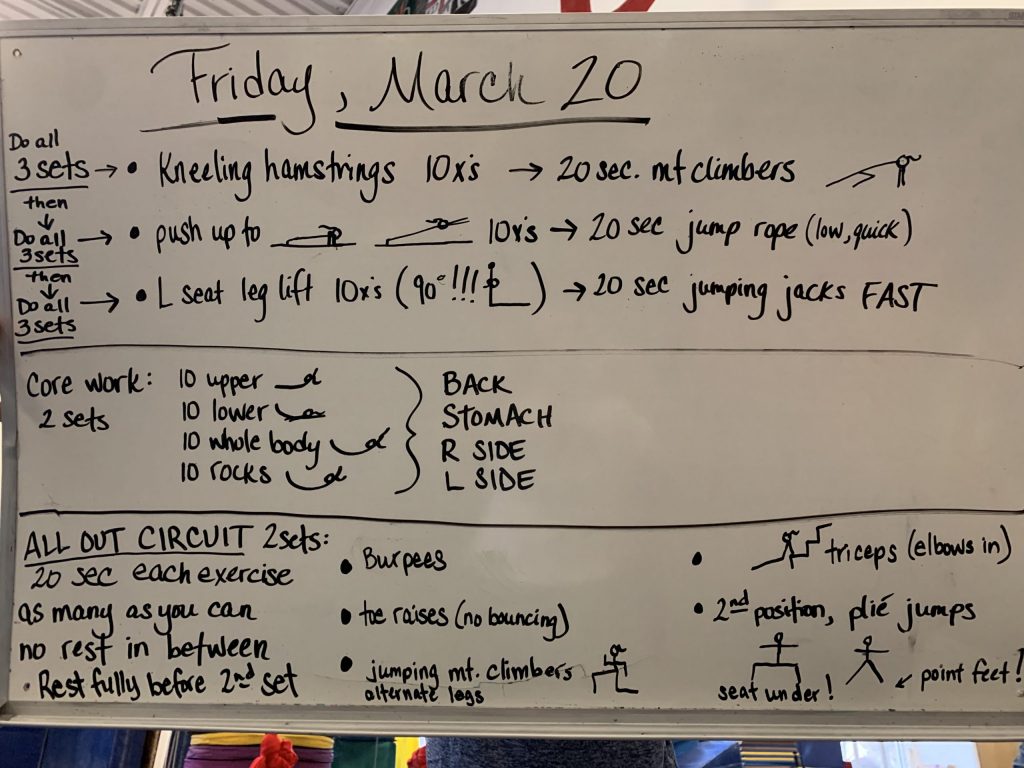 Friday, March 20
Do all
3 sets → • Kneeling hamstrings 10x's → 20 sec. mt climbers
then
↓
Do all → • push up to 10x's → 20 sec jump rope (low, quick)
3 sets
then
↓
Do all → • L seat leg lift 10x's (90°!!!) → 20 sec jumping jacks FAST
3 sets
Core work: 10 upper BACK
2 sets 10 lower STOMACH
10 whole body R SIDE
10 rocks L SIDE
ALL OUT CIRCUIT 2 sets:
20 sec each exercise
as many as you can
no rest in between
• Rest fully before 2nd set
• Burpees
• toe raises (no bouncing)
• jumping mt. climbers
alternate legs
• triceps (elbows in)
• 2nd position, plié jumps
seat under! ↙ point feet!